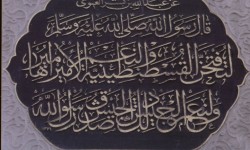 عن عبد الله بن بشر الغنوي
قال رسول الله صلى الله عليه وسلم
لتفتحن القسطنطينية ولنعم الامير اميرها
ولنعم الجيش ذلك الجيش صدق رسول الله